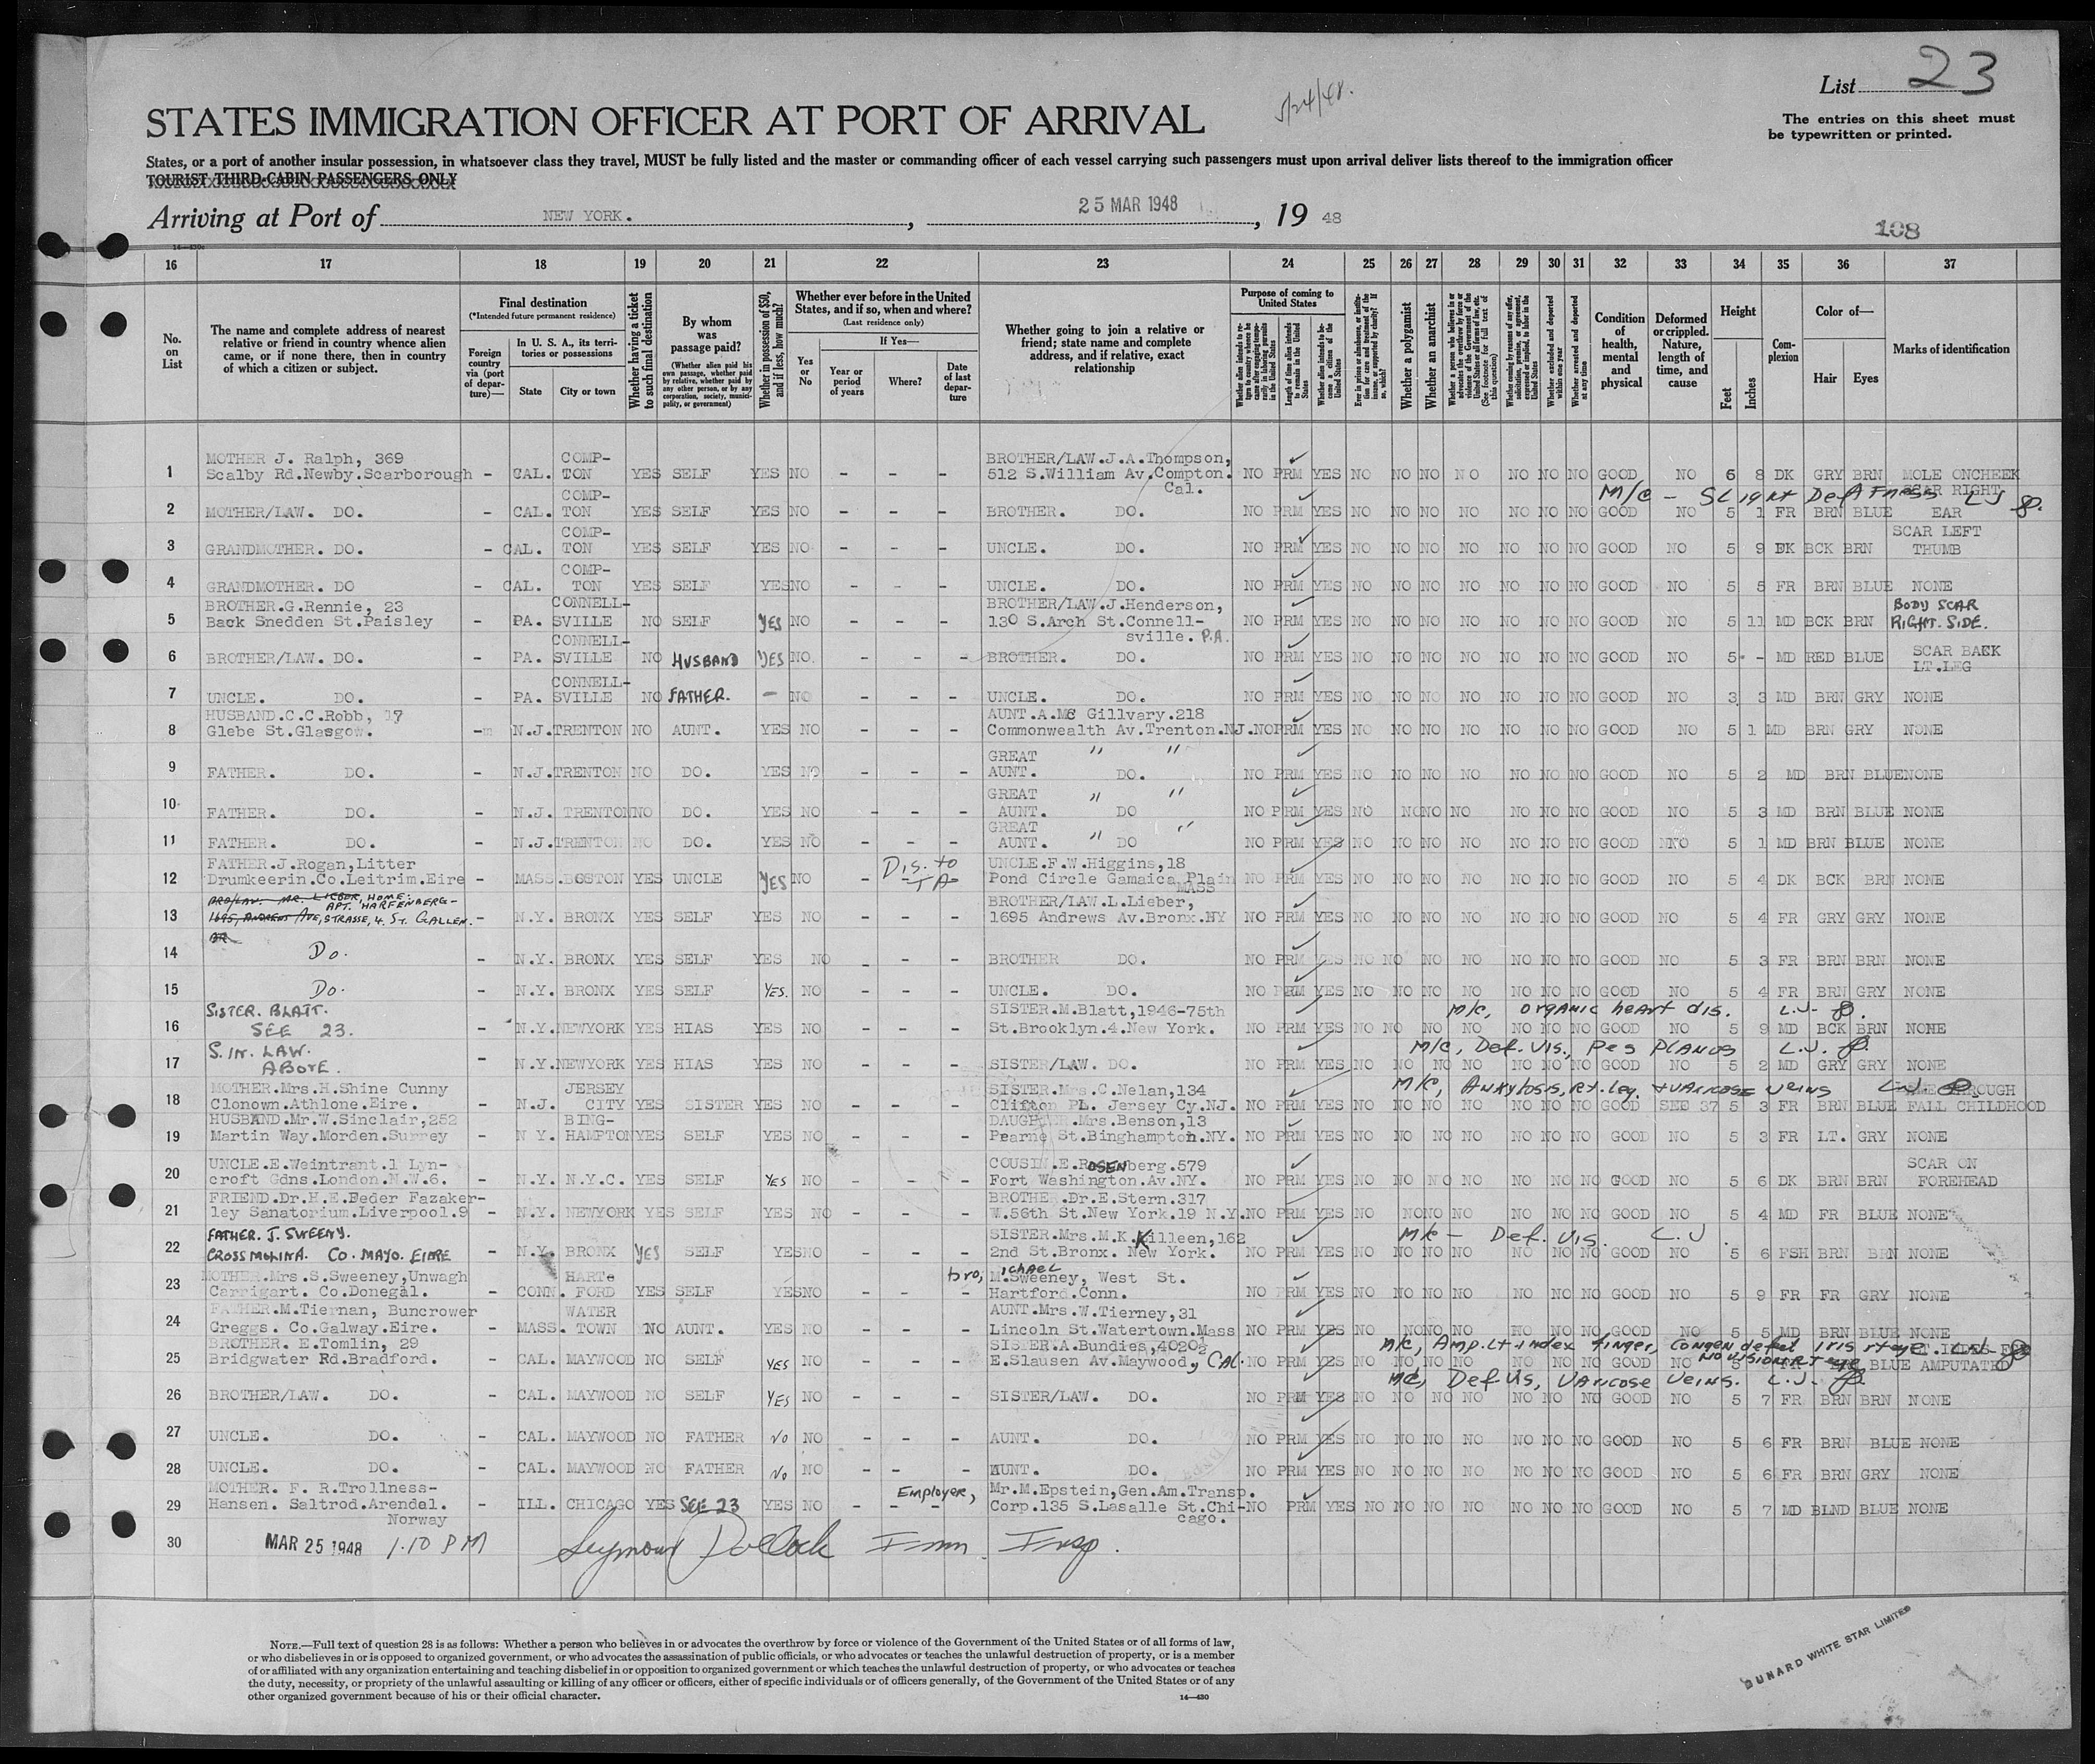 List 23
5/24/48.
STATES IMMIGRATION OFFICER AT PORT OF ARRIVAL
The entries on this sheet must
be typewritten or printed.
States, or a port of another insular possession, in whatsoever class they travel, MUST be fully listed and the master or commanding officer of each vessel carrying such passengers must upon arrival deliver lists thereof to the immigration officer
TOURIST THIRD-CABIN PASSENGERS ONLY
Arriving at Port of NEW YORK. , 25 MAR 1948 , 19 48
108
16 17 18 19 20 21 22 23 24 25 26 27 28 29 30 31 32 33 34 35 36 37
No. on List
The name and complete address of nearest relative or friend in country whence alien came, or if none there, then in country of which a citizen or subject.
Final destination
(*Intended future permanent residence)
Foreign country via (port of departure)—
In U. S. A., its territories or possessions
State
City or town
Whether having a ticket to such final destination
By whom was passage paid?
(Whether alien paid his own passage, whether paid by relative, whether paid by any other person, or by any corporation, society, municipality, or government)
Whether in possession of $50, and if less, how much?
Whether ever before in the United States, and if so, when and where?
(Last residence only)
Yes or No
If Yes—
Year or period of years
Where?
Date of last departure
Whether going to join a relative or friend; state name and complete address, and if relative, exact relationship
Purpose of coming to United States
Length of time alien intends to remain in the United States
Whether alien intends to become a citizen of the United States
Whether a polygamist
Whether an anarchist
Whether excluded and deported within one year
Whether arrested and deported at any time
Condition of health, mental and physical
Deformed or crippled. Nature, length of time, and cause
Height
Feet
Inches
Complexion
Color of—
Hair
Eyes
Marks of identification
MOTHER J. Ralph, 369 COMP- BROTHER/LAW.J.A.Thompson,
1 Scalby Rd.Newby.Scarborough - CAL. TON YES SELF YES NO - - - 512 S.William Av.Compton. NO PRM YES NO NO NO NO NO NO NO GOOD NO 6 8 DK GRY BRN MOLE ONCHEEK
Cal.
M/c - Slight Deafness LJ
COMP- SCAR RIGHT
2 MOTHER/LAW. DO. - CAL. TON YES SELF YES NO - - - BROTHER. DO. NO PRM YES NO NO NO NO NO NO NO GOOD NO 5 1 FR BRN BLUE EAR
COMP- SCAR LEFT
3 GRANDMOTHER. DO. - CAL. TON YES SELF YES NO - - - UNCLE. DO. NO PRM YES NO NO NO NO NO NO NO GOOD NO 5 9 DK BCK BRN THUMB
COMP-
4 GRANDMOTHER. DO - CAL. TON YES SELF YES NO - - - UNCLE. DO. NO PRM YES NO NO NO NO NO NO NO GOOD NO 5 5 FR BRN BLUE NONE
BROTHER.G.Rennie, 23 CONNELL- BROTHER/LAW.J.Henderson, BODY SCAR
5 Back Snedden St.Paisley - PA. SVILLE NO SELF YES NO - - - 130 S.Arch St.Connell- NO PRM YES NO NO NO NO NO NO NO GOOD NO 5 11 MD BCK BRN RIGHT. SIDE.
sville. P.A.
CONNELL- SCAR BACK
6 BROTHER/LAW. DO. - PA. SVILLE NO HUSBAND YES NO. - - - BROTHER. DO. NO PRM YES NO NO NO NO NO NO NO GOOD NO 5 - MD RED BLUE LT.LEG
CONNELL-
7 UNCLE. DO. - PA. SVILLE NO FATHER. - NO - - - UNCLE. DO. NO PRM YES NO NO NO NO NO NO NO GOOD NO 3 3 MD BRN GRY NONE
HUSBAND.C.C.Robb, 17 AUNT.A.Mc Gillvary.218
8 Glebe St.Glasgow. - N.J. TRENTON NO AUNT. YES NO - - - Commonwealth Av.Trenton.NJ. NO PRM YES NO NO NO NO NO NO NO GOOD NO 5 1 MD BRN GRY NONE
GREAT " "
9 FATHER. DO. - N.J. TRENTON NO DO. YES NO - - - AUNT. DO. NO PRM YES NO NO NO NO NO NO NO GOOD NO 5 2 MD BRN BLUE NONE
GREAT " "
10 FATHER. DO. - N.J. TRENTON NO DO. YES NO - - - AUNT. DO NO PRM YES NO NO NO NO NO NO NO GOOD NO 5 3 MD BRN BLUE NONE
GREAT " "
11 FATHER. DO. - N.J. TRENTON NO DO. YES NO - - - AUNT. DO NO PRM YES NO NO NO NO NO NO NO GOOD NO 5 1 MD BRN BLUE NONE
FATHER.J.Rogan,Litter Dis. to UNCLE.F.W.Higgins,18
12 Drumkeerin.Co.Leitrim.Eire - MASS. BOSTON YES UNCLE YES NO - - Pond Circle Gamaica Plain NO PRM YES NO NO NO NO NO NO NO GOOD NO 5 4 DK BCK BRN NONE
MASS
BRO/LAW. MR. LIEBER, HOME: APT. HARFENBERG- BROTHER/LAW.L.Lieber,
13 1695, ANDREWS AVE, STRASSE, 4. ST. GALLEN. - N.Y. BRONX YES SELF YES NO - - - 1695 Andrews Av.Bronx.NY NO PRM YES NO NO NO NO NO NO NO GOOD NO 5 4 FR GRY GRY NONE
14 Do. - N.Y. BRONX YES SELF YES NO - - - BROTHER DO. NO PRM YES NO NO NO NO NO NO NO GOOD NO 5 3 FR BRN BRN NONE
15 Do. - N.Y. BRONX YES SELF YES. NO - - - UNCLE. DO. NO PRM YES NO NO NO NO NO NO NO GOOD NO 5 4 FR BRN GRY NONE
SISTER. BLATT. SISTER.M.Blatt,1946-75th M/c, organic heart dis. L.J.
16 SEE 23. - N.Y. NEWYORK YES HIAS YES NO - - - St.Brooklyn.4.New York. NO PRM YES NO NO NO NO NO NO NO GOOD NO 5 9 MD BCK BRN NONE
S. IN. LAW. M/c, Def. Vis., Pes Planus L.J.
17 ABOVE. - N.Y. NEWYORK YES HIAS YES NO - - - SISTER/LAW. DO. NO PRM YES NO NO NO NO NO NO NO GOOD NO 5 2 MD GRY GRY NONE
MOTHER.Mrs.H.Shine Cunny JERSEY SISTER.Mrs.C.Nelan,134 M/c, Ankylosis, rt. leg. + varicose veins L.J. THROUGH
18 Clonown.Athlone.Eire. - N.J. CITY YES SISTER YES NO - - - Clifton PL. Jersey Cy.NJ. NO PRM YES NO NO NO NO NO NO NO GOOD SEE 37 5 3 FR BRN BLUE FALL CHILDHOOD
HUSBAND.Mr.W.Sinclair,252 BING- .Mrs.Benson,13
19 Martin Way.Morden.Surrey - N Y. HAMPTON YES SELF YES NO - - - Pearne St.Binghampton.NY. NO PRM YES NO NO NO NO NO NO NO GOOD NO 5 3 FR LT. GRY NONE
UNCLE.E.Weintrant.1 Lyn- COUSIN.E.ROSENberg.579 SCAR ON
20 croft Gdns.London.N.W.6. - N.Y. N.Y.C. YES SELF YES NO - - - Fort Washington.Av.NY. NO PRM YES NO NO NO NO NO NO NO GOOD NO 5 6 DK BRN BRN FOREHEAD
FRIEND.Dr.H.E.Feder Fazaker- BROTHER.Dr.E.Stern.317
21 ley Sanatorium.Liverpool.9 - N.Y. NEWYORK YES SELF YES NO - - - W.56th St.New York.19 N.Y. NO PRM YES NO NO NO NO NO NO NO GOOD NO 5 4 MD FR BLUE NONE
FATHER. J. SWEENY. SISTER.Mrs.M.K.Killeen,162 M/c - Def. Vis. L.J.
22 CROSSMOLINA. CO. MAYO. EIRE - N.Y. BRONX YES SELF YES NO - - - 2nd St.Bronx. New York. NO PRM YES NO NO NO NO NO NO NO GOOD NO 5 6 FSH BRN BRN NONE
MOTHER.Mrs.S.Sweeney,Unwagh HART- bro, Michael Sweeney, West St.
23 Carrigart. Co.Donegal. - CONN. FORD YES SELF YES NO - - - Hartford.Conn. NO PRM YES NO NO NO NO NO NO NO GOOD NO 5 9 FR FR GRY NONE
FATHER.M.Tiernan, Buncrower WATER AUNT.Mrs.W.Tierney,31
24 Greggs. Co.Galway.Eire. - MASS. TOWN NO AUNT. YES NO - - - Lincoln St.Watertown.Mass NO PRM YES NO NO NO NO NO NO NO GOOD NO 5 5 MD BRN BLUE NONE
BROTHER. E.Tomlin, 29 SISTER.A.Bundies,4020½ M/c, Amp. Lt. index finger, Congen defect iris rt eye. L.J.
25 Bridgwater Rd.Bradford. - CAL. MAYWOOD NO SELF YES NO - - - E.Slausen Av.Maywood, CAL. NO PRM YES NO NO NO NO NO NO NO GOOD NO No vision Rt eye 5 BLUE AMPUTATED
M/c, Def Vis, Varicose Veins. L.J.
26 BROTHER/LAW. DO. - CAL. MAYWOOD NO SELF YES NO - - - SISTER/LAW. DO. NO PRM YES NO NO NO NO NO NO NO GOOD NO 5 7 FR BRN BRN NONE
27 UNCLE. DO. - CAL. MAYWOOD NO FATHER No NO - - - AUNT. DO. NO PRM YES NO NO NO NO NO NO NO GOOD NO 5 6 FR BRN BLUE NONE
28 UNCLE. DO. - CAL. MAYWOOD NO FATHER No NO - - - AUNT. DO. NO PRM YES NO NO NO NO NO NO NO GOOD NO 5 6 FR BRN GRY NONE
MOTHER. F. R.Trollness- Employer, Mr.M.Epstein,Gen.Am.Transp.
29 Hansen. Saltrod.Arendal. - ILL. CHICAGO YES SEE 23 YES NO - - - Corp.135 S.Lasalle St.Chi- NO PRM YES NO NO NO NO NO NO NO GOOD NO 5 7 MD BLND BLUE NONE
Norway cago.
30 MAR 25 1948 1.10 PM Seymour Pollock Imm. Insp.
NOTE.—Full text of question 28 is as follows: Whether a person who believes in or advocates the overthrow by force or violence of the Government of the United States or of all forms of law,
or who disbelieves in or is opposed to organized government, or who advocates the assassination of public officials, or who advocates or teaches the unlawful destruction of property, or is a member
of or affiliated with any organization entertaining and teaching disbelief in or opposition to organized government or which teaches the unlawful destruction of property, or who advocates or teaches
the duty, necessity, or propriety of the unlawful assaulting or killing of any officer or officers, either of specific individuals or of officers generally, of the Government of the United States or of any
other organized government because of his or their official character.
14—430
CUNARD WHITE STAR LIMITED